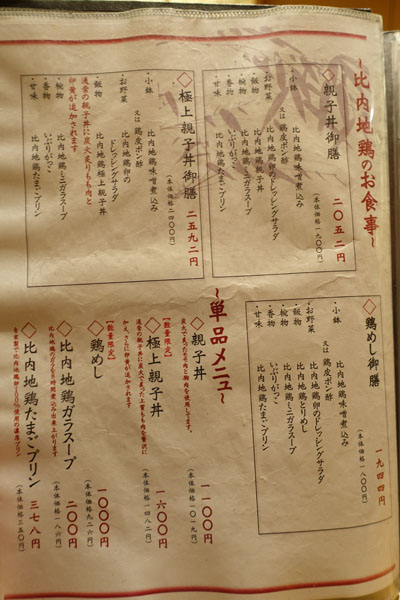 ~比内地鶏のお食事~
◇親子丼御膳
二〇五二円
(本体価格一九〇〇円)
・小鉢 比内地鶏味噌煮込み
又は 鶏皮ポン酢
・お野菜 比内地鶏卵のドレッシングサラダ
・飯物 比内地鶏親子丼
・椀物 比内地鶏ミニガラスープ
・香物 いぶりがっこ
・甘味 比内地鶏たまごプリン
◇極上親子丼御膳
二五九二円
(本体価格二四〇〇円)
・小鉢 比内地鶏味噌煮込み
又は 鶏皮ポン酢
・お野菜 比内地鶏卵の
ドレッシングサラダ
・飯物 比内地鶏極上親子丼
通常の親子丼に炭火炙りもも肉と
卵黄が追加されます
・椀物 比内地鶏ミニガラスープ
・香物 いぶりがっこ
・甘味 比内地鶏たまごプリン
◇鶏めし御膳
一九四四円
(本体価格一八〇〇円)
・小鉢 比内地鶏味噌煮込み
又は 鶏皮ポン酢
・お野菜 比内地鶏卵のドレッシングサラダ
・飯物 比内地鶏とりめし
・椀物 比内地鶏ミニガラスープ
・香物 いぶりがっこ
・甘味 比内地鶏たまごプリン
~単品メニュー~
◇親子丼
一一〇〇円
(本体価格一〇一九円)
◇極上親子丼
【数量限定】
一六〇〇円
(本体価格一四八二円)
◇鶏めし
【数量限定】
一〇〇〇円
(本体価格九二六円)
◇比内地鶏ガラスープ
二〇〇円
(本体価格一八六円)
◇比内地鶏たまごプリン
三七八円
(本体価格三五〇円)